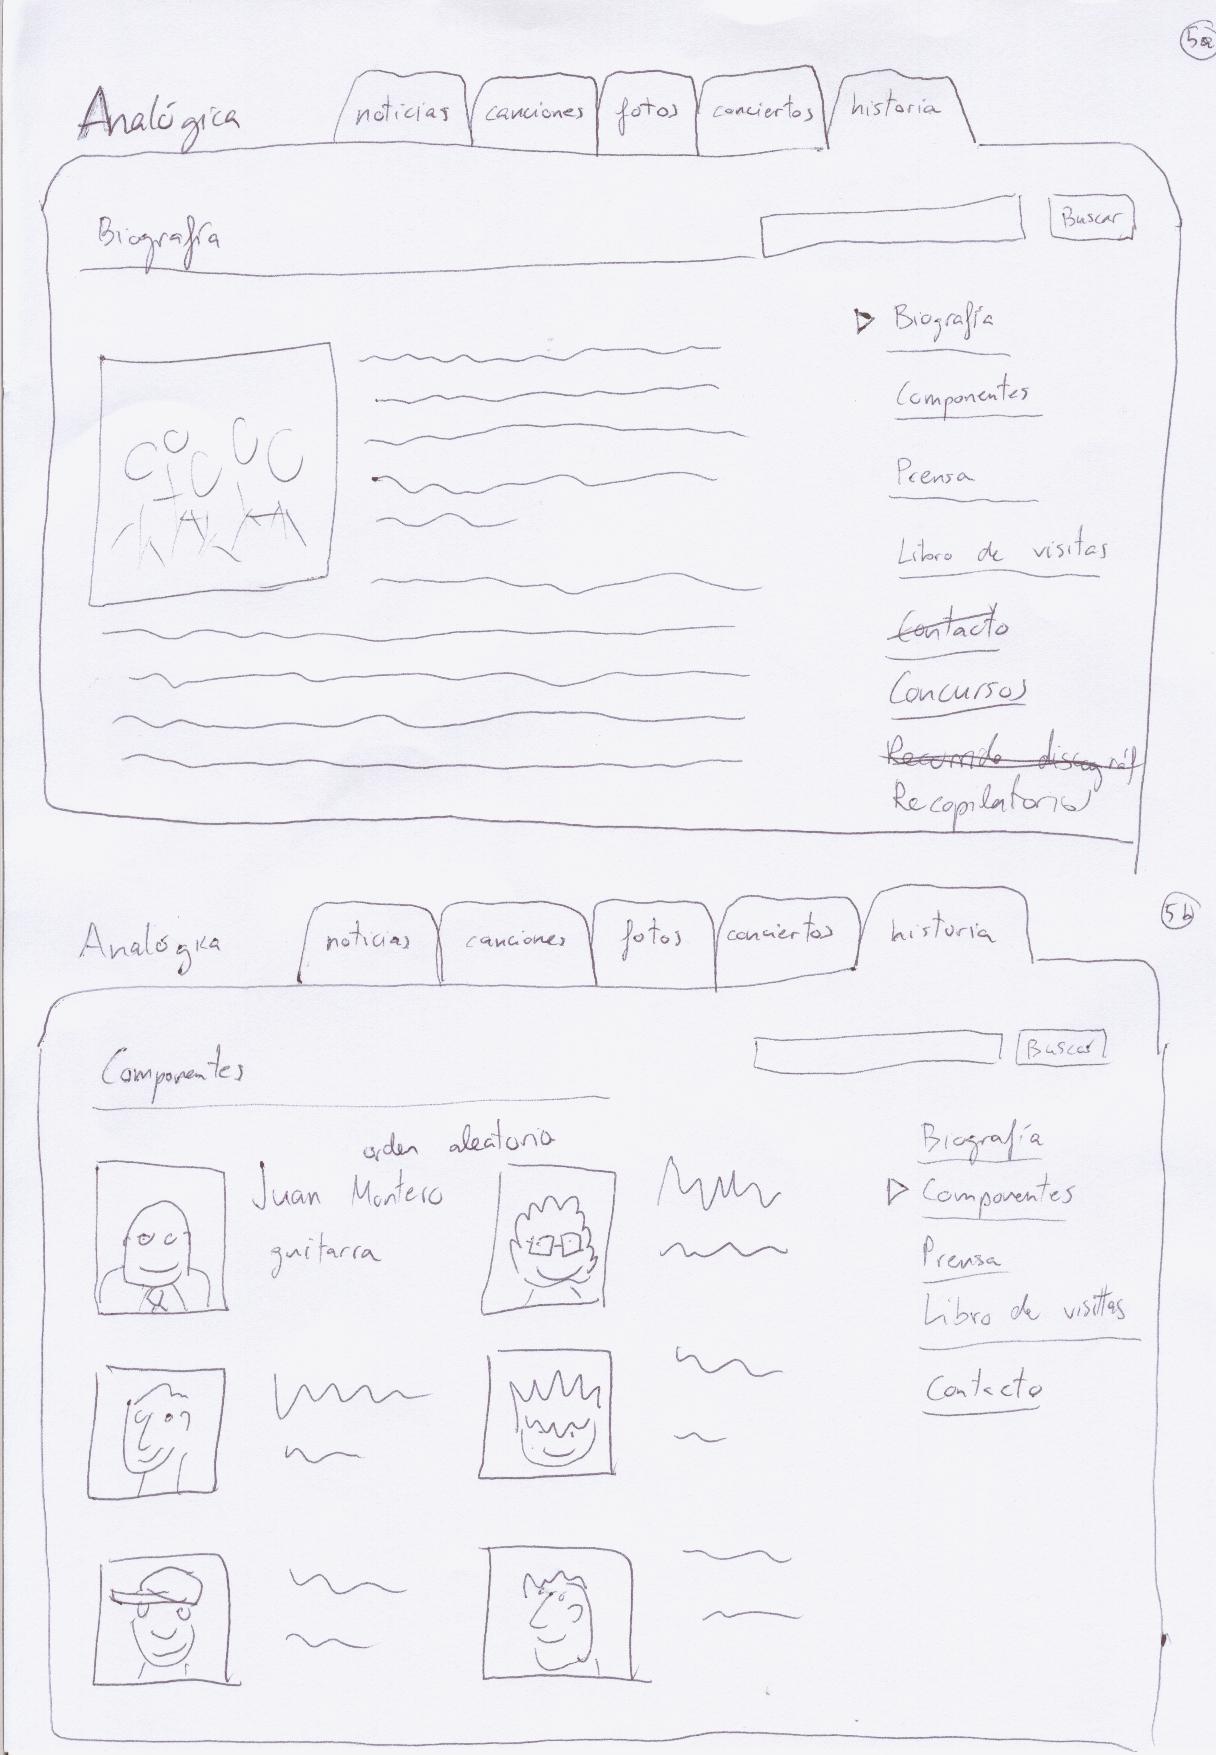 5a
Analógica noticias canciones fotos conciertos historia
Biografía Buscar
Biografía
Componentes
Prensa
Libro de visitas
Contacto
Concursos
Recopilatorios
5b
Analógica noticias canciones fotos conciertos historia
Componentes Buscar
orden aleatorio
Juan Montero
guitarra
Biografía
Componentes
Prensa
Libro de visitas
Contacto